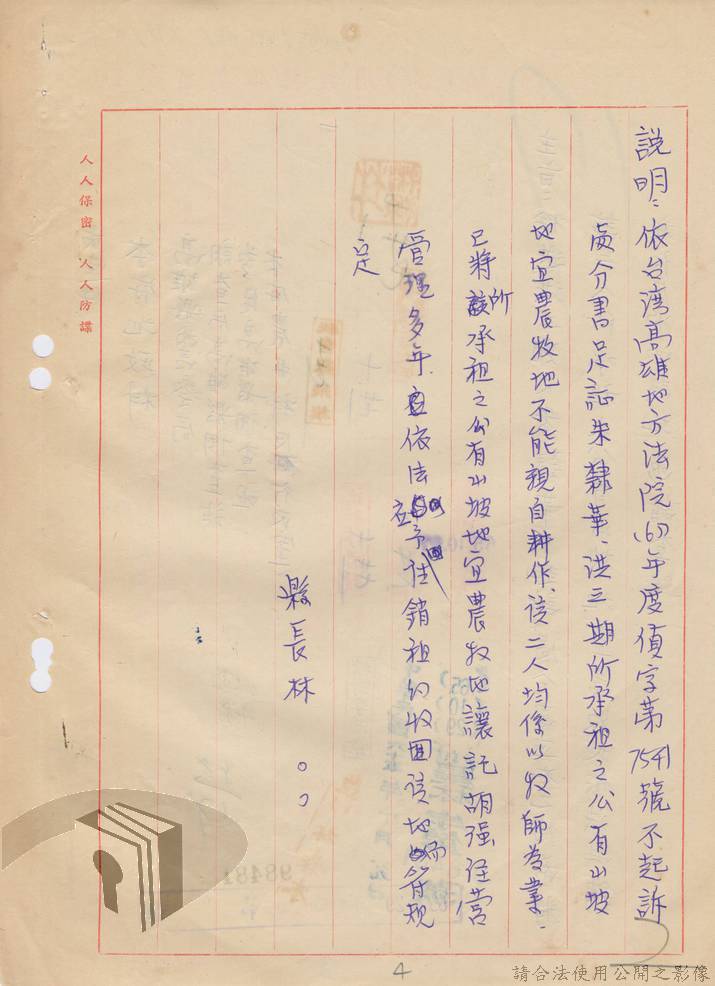 說明：依台湾高雄地方法院(67)年度偵字第7541號不起訴
處分書足証朱隸華、洪三期所承租之公有山坡
地宜農牧地不能親自耕作、該二人均係以牧師為業、
已將所承租之公有山坡地宜農牧地讓託胡强經營
管理多年應依法予註銷租約收回該地而符規
定
縣長林
人人保密 人人防諜
98481
4
請合法使用公開之影像